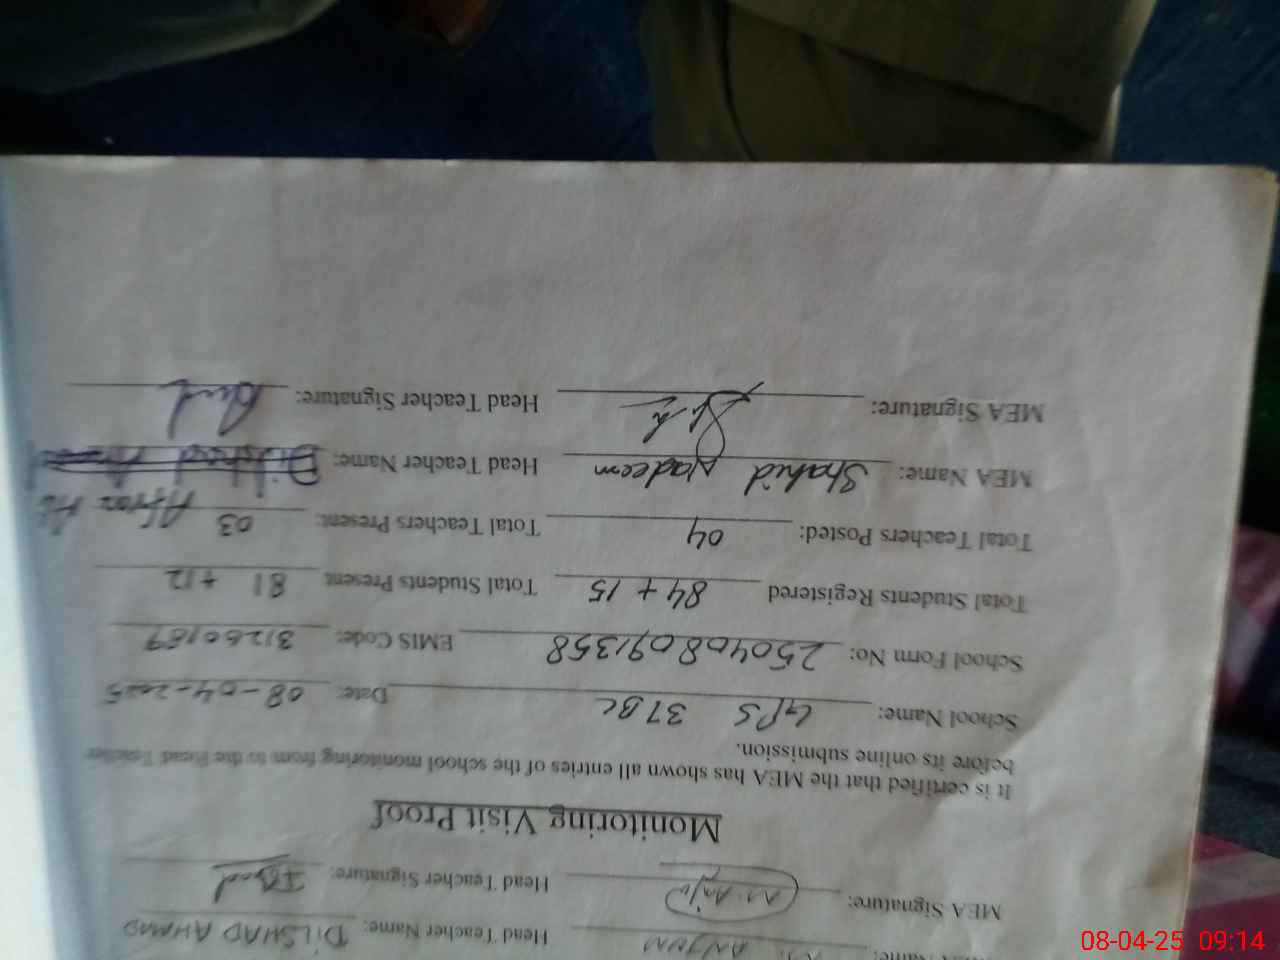 Name: ANJUM Head Teacher Name: DILSHAD AHMAD
MEA Signature: Head Teacher Signature:
Monitoring Visit Proof
It is certified that the MEA has shown all entries of the school monitoring from to the Head Teacher
before its online submission.
School Name: GPS 37BC Date: 08-04-2025
School Form No: 250408091358 EMIS Code: 31260187
Total Students Registered 84 + 15 Total Students Present 81 + 12
Total Teachers Posted: 04 Total Teachers Present: 03
MEA Name: Shahid Nadeem Head Teacher Name:
MEA Signature: Head Teacher Signature:
08-04-25 09:14